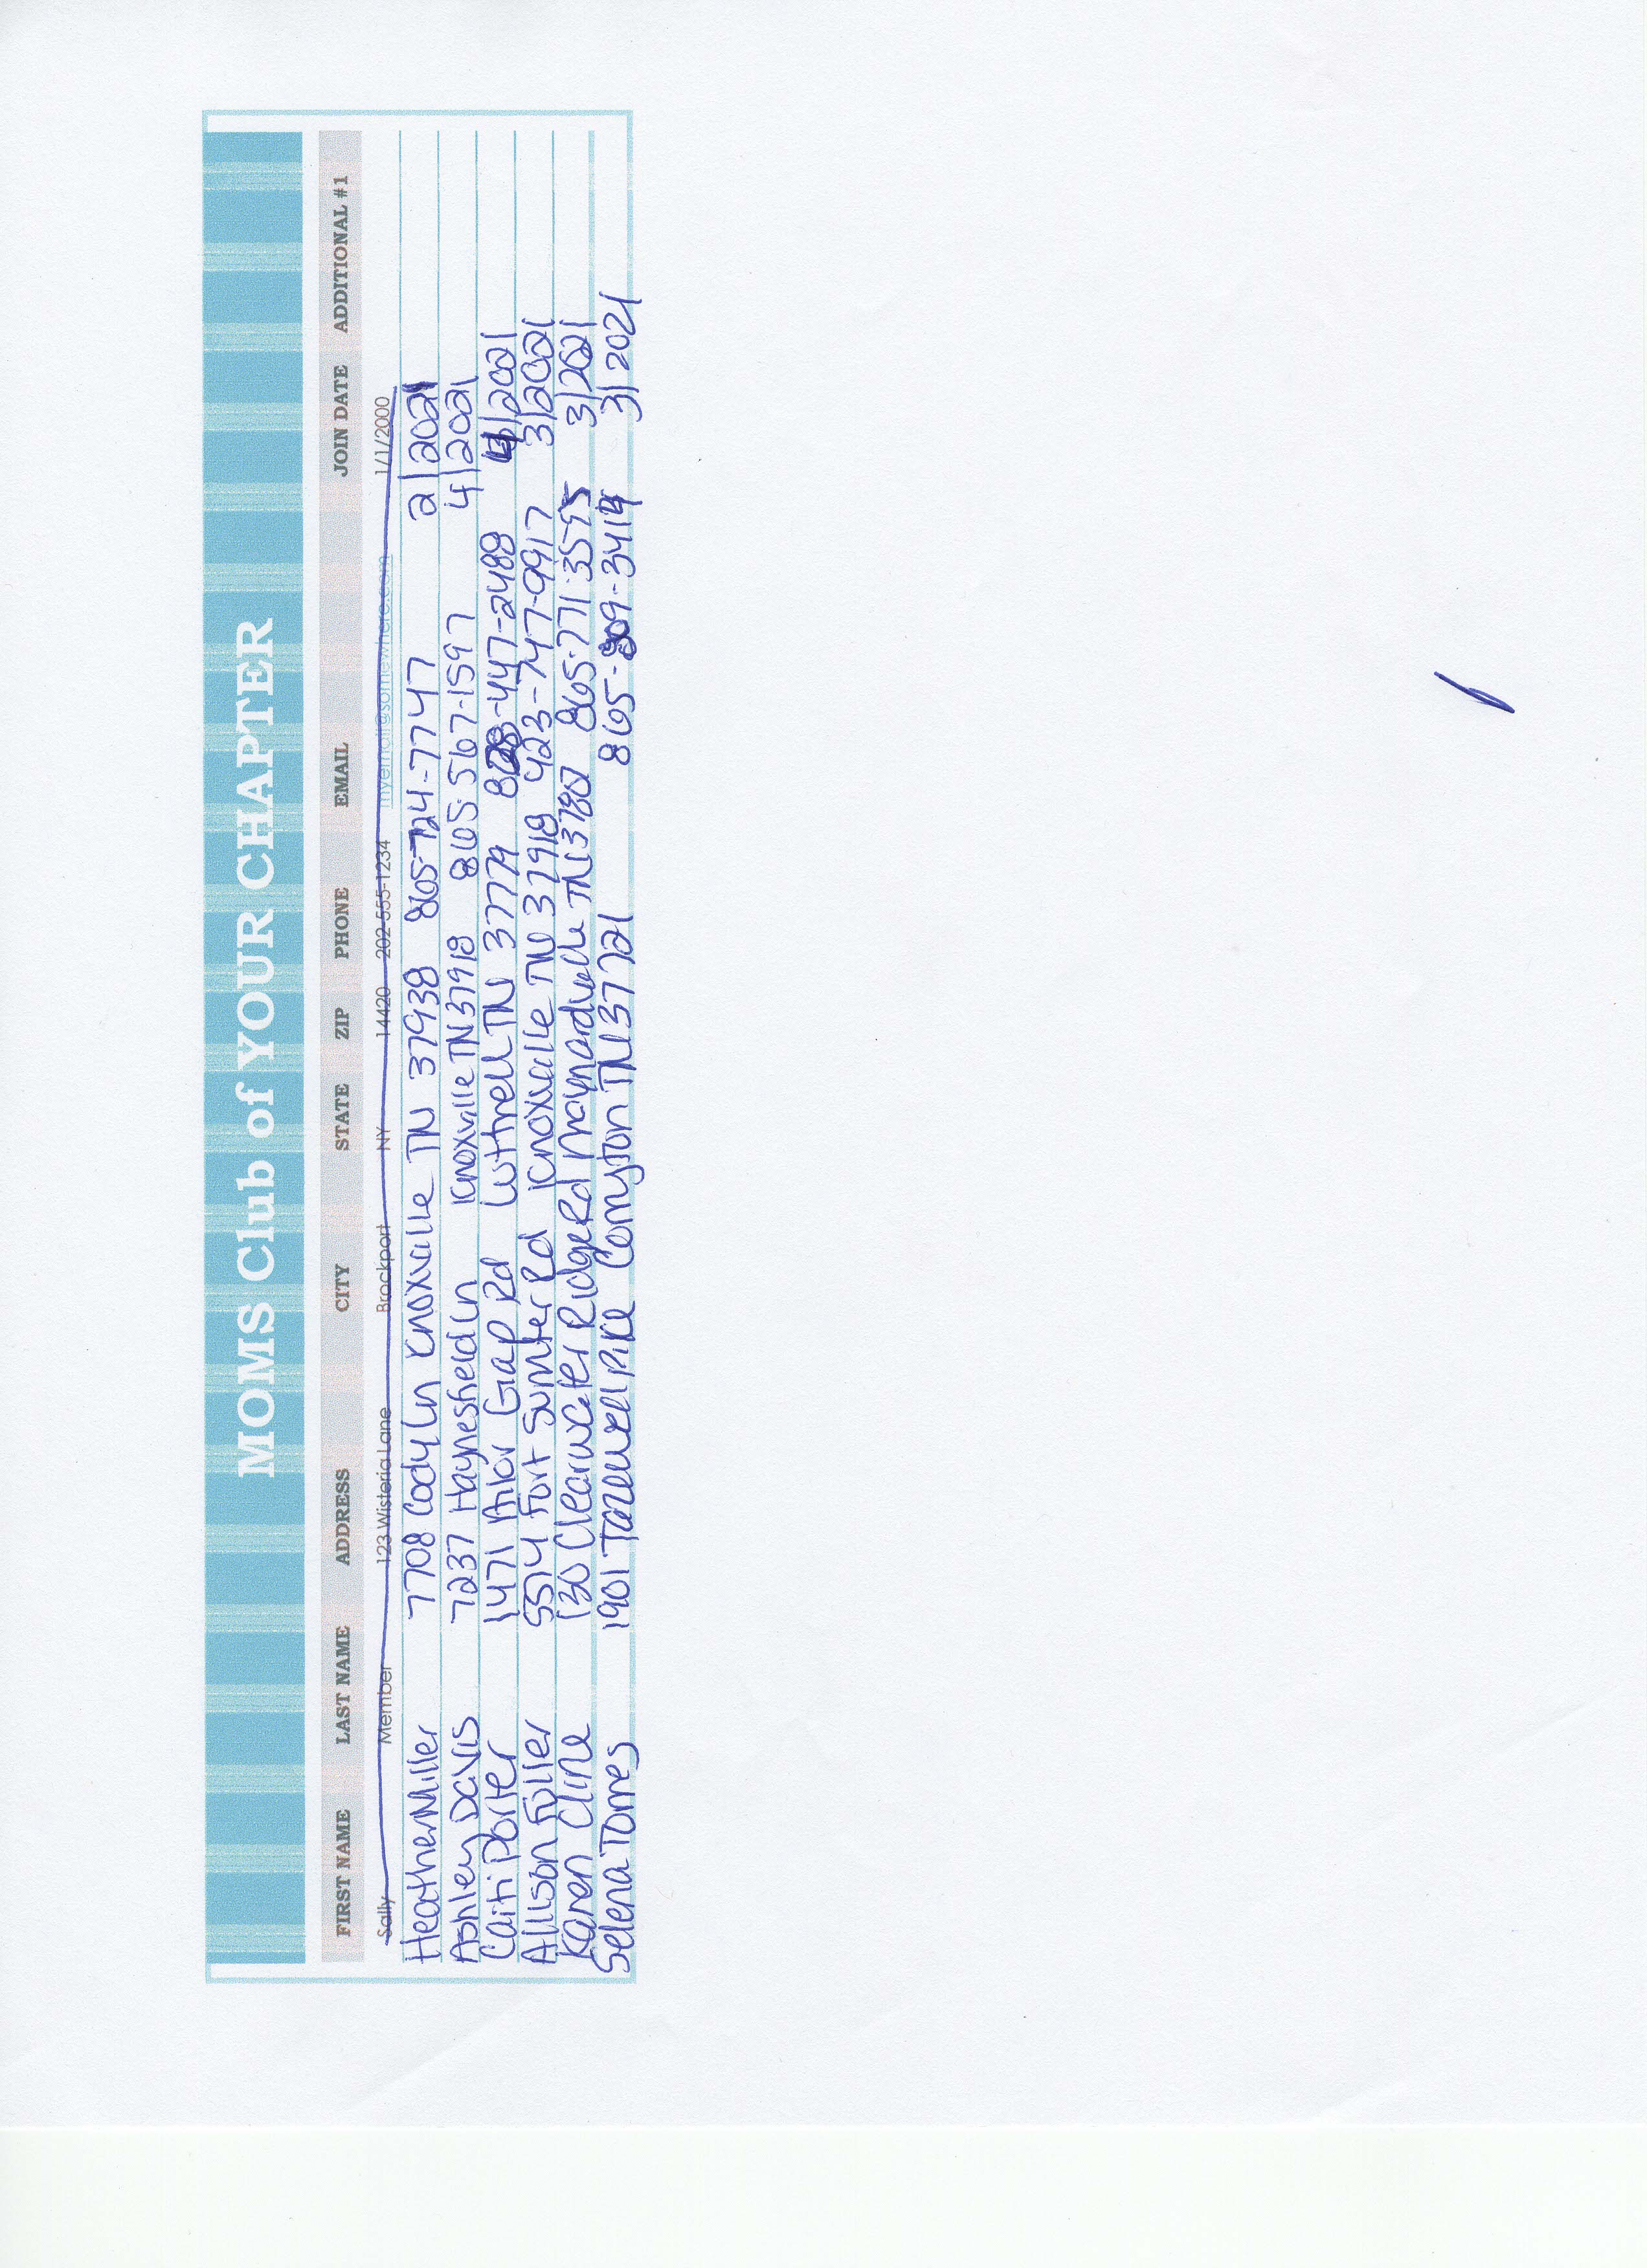 MOMS Club of YOUR CHAPTER
FIRST NAME LAST NAME ADDRESS CITY STATE ZIP PHONE EMAIL JOIN DATE ADDITIONAL #1
Sally Member 123 Wisteria Lane Brockport NY 14420 202-555-1234 myemail@somewhere.com 1/1/2000
Heather Miller 7708 Cody Ln Knoxville TN 37938 865-724-7747 2/2021
Ashley Davis 7237 Haynesfield Ln Knoxville TN 37918 865-567-1597 4/2021
Caiti Porter 1471 Ailor Gap Rd Luttrell TN 37779 828-447-2488 4/2021
Allison Fuller 5514 Fort Sumter Rd Knoxville TN 37918 423-747-9917 3/2021
Karen Cline 130 Clearwater Ridge Rd Maynardville TN 37807 865-771-3595 3/2021
Selena Torres 1901 Tazewell Pike Corryton TN 37721 865-809-3414 3/2021